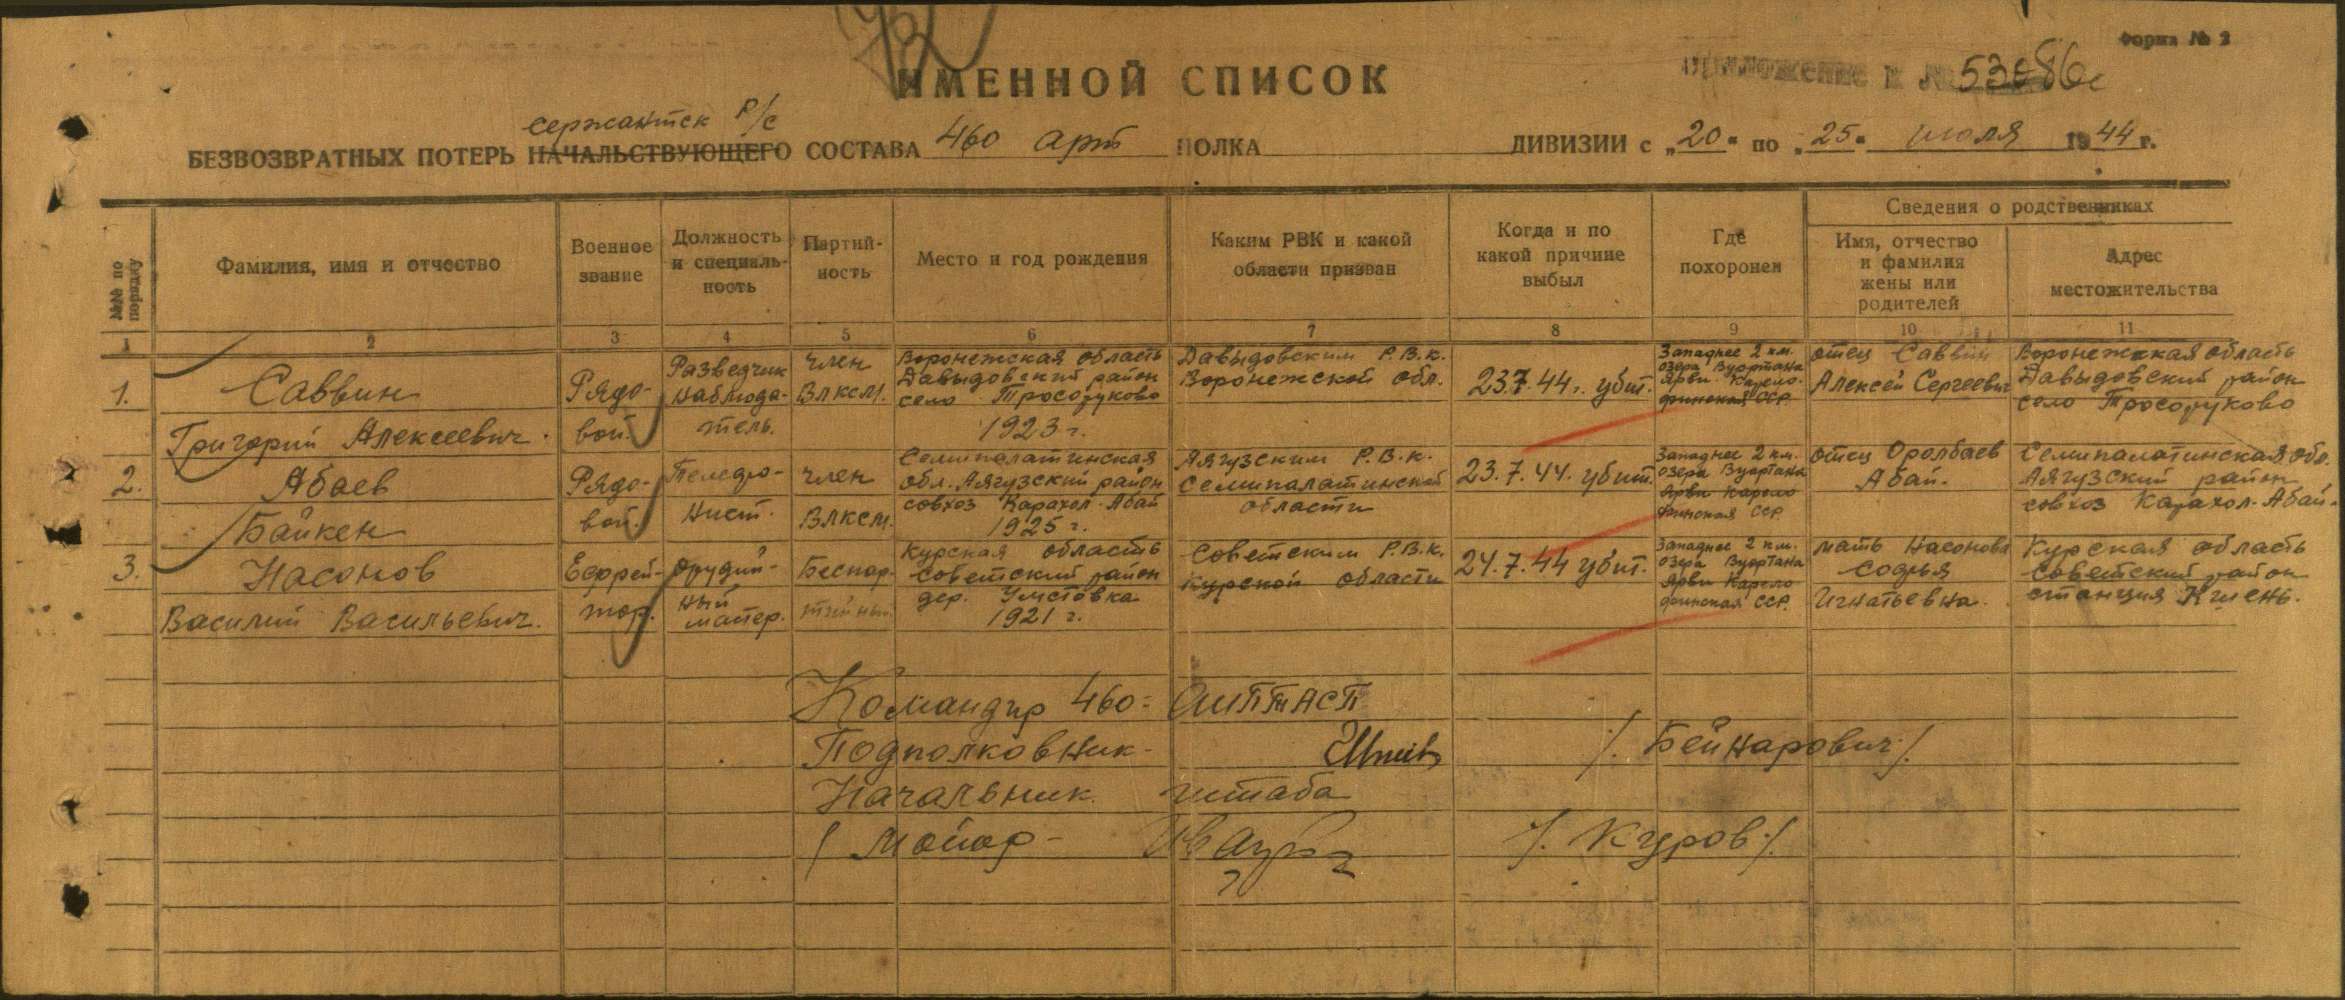 Форма № 2
ИМЕННОЙ СПИСОК
Приложение к № 53086с
сержантск р/с
БЕЗВОЗВРАТНЫХ ПОТЕРЬ НАЧАЛЬСТВУЮЩЕГО СОСТАВА 460 арт ПОЛКА ДИВИЗИИ с „20“ по „25“ июля 1944 г.
№№ по порядку
Фамилия, имя и отчество
Военное звание
Должность и специальность
Партий-
ность
Место и год рождения
Каким РВК и какой
области призван
Когда и по
какой причине
выбыл
Где
похоронен
Сведения о родственниках
Имя, отчество
и фамилия
жены или
родителей
Адрес
местожительства
1 2 3 4 5 6 7 8 9 10 11
1.
Саввин
Григорий Алексеевич.
Рядо-
вой.
Разведчик
наблюда-
тель.
член
ВЛКСМ.
Воронежская область
Давыдовский район
село Тросоруково
1923 г.
Давыдовским Р.В.К.
Воронежской обл.
23.7.44г. убит.
Западнее 2 км.
озера Вуортана
Ярви Карело-
финская ССР
отец Саввин
Алексей Сергеевич
Воронежская область
Давыдовский район
село Тросоруково
2.
Абаев
Байкен
Рядо-
вой.
Телефо-
нист.
член
ВЛКСМ.
Семипалатинская
обл. Аягузский район
совхоз Карахол-Абай
1925 г.
Аягузским Р.В.К.
Семипалатинской
области
23.7.44. убит.
Западнее 2 км.
озера Вуортана
Ярви Карело
финская ССР
отец Оролбаев
Абай.
Семипалатинская обл.
Аягузский район
совхоз Карахол-Абай.
3.
Насонов
Василий Васильевич.
Ефрей-
тор.
орудий-
ный
мастер.
Беспар-
тийный
Курская область
Советский район
дер. Умстовка
1921 г.
Советским Р.В.К.
Курской области
24.7.44 убит.
Западнее 2 км.
озера Вуортана
Ярви Карело
финская ССР.
мать Насонова
Софья
Игнатьевна.
Курская область
Советский район
станция Кшень.
Командир 460-
Подполковник- /. Бейнарович /.
Начальник штаба
/ Майор- /. Куров /.